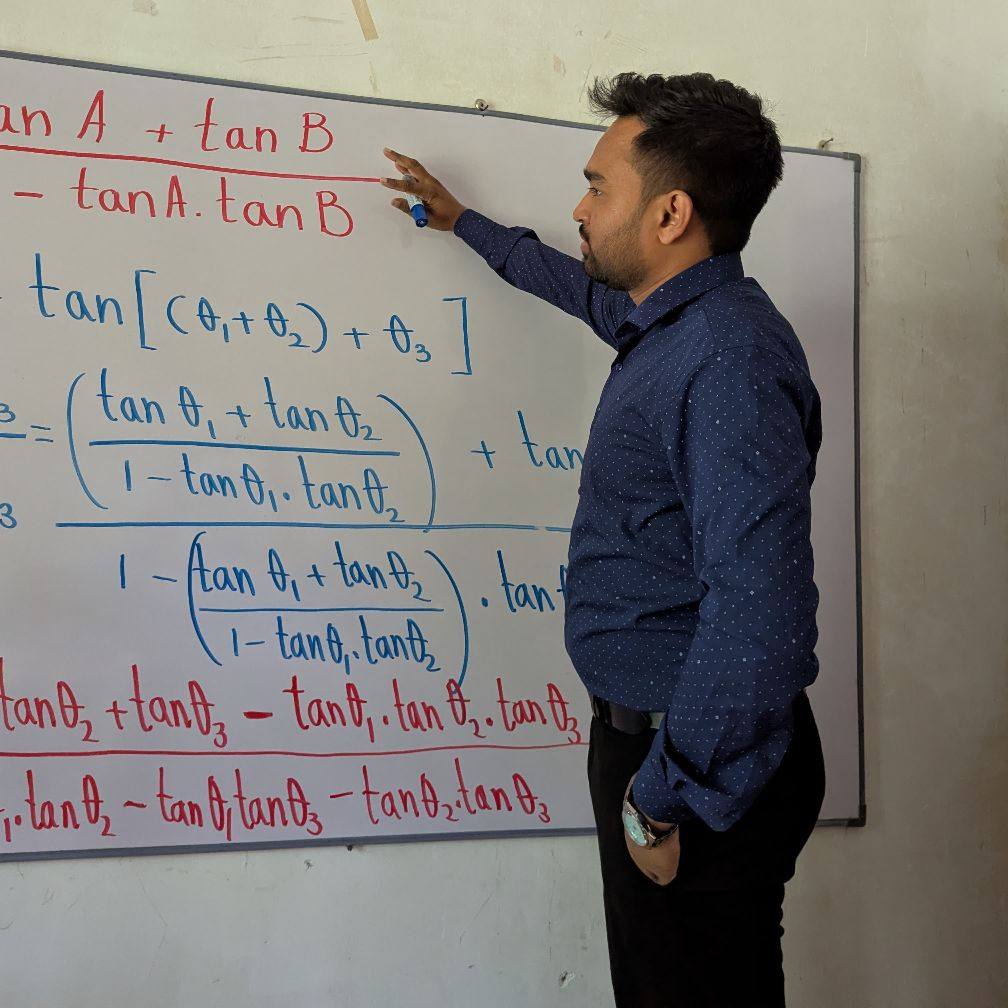 an A + tan B
- tanA. tan B
tan [(θ₁+θ₂) + θ₃]
3 = (tan θ₁ + tan θ₂) + tan
1 - tanθ₁. tanθ₂
3
1 - (tan θ₁ + tan θ₂) . tan
1 - tanθ₁. tanθ₂
tanθ₂ + tanθ₃ - tanθ₁. tan θ₂. tan θ₃
₁. tan θ₂ - tan θ₁ tan θ₃ - tan θ₂. tan θ₃